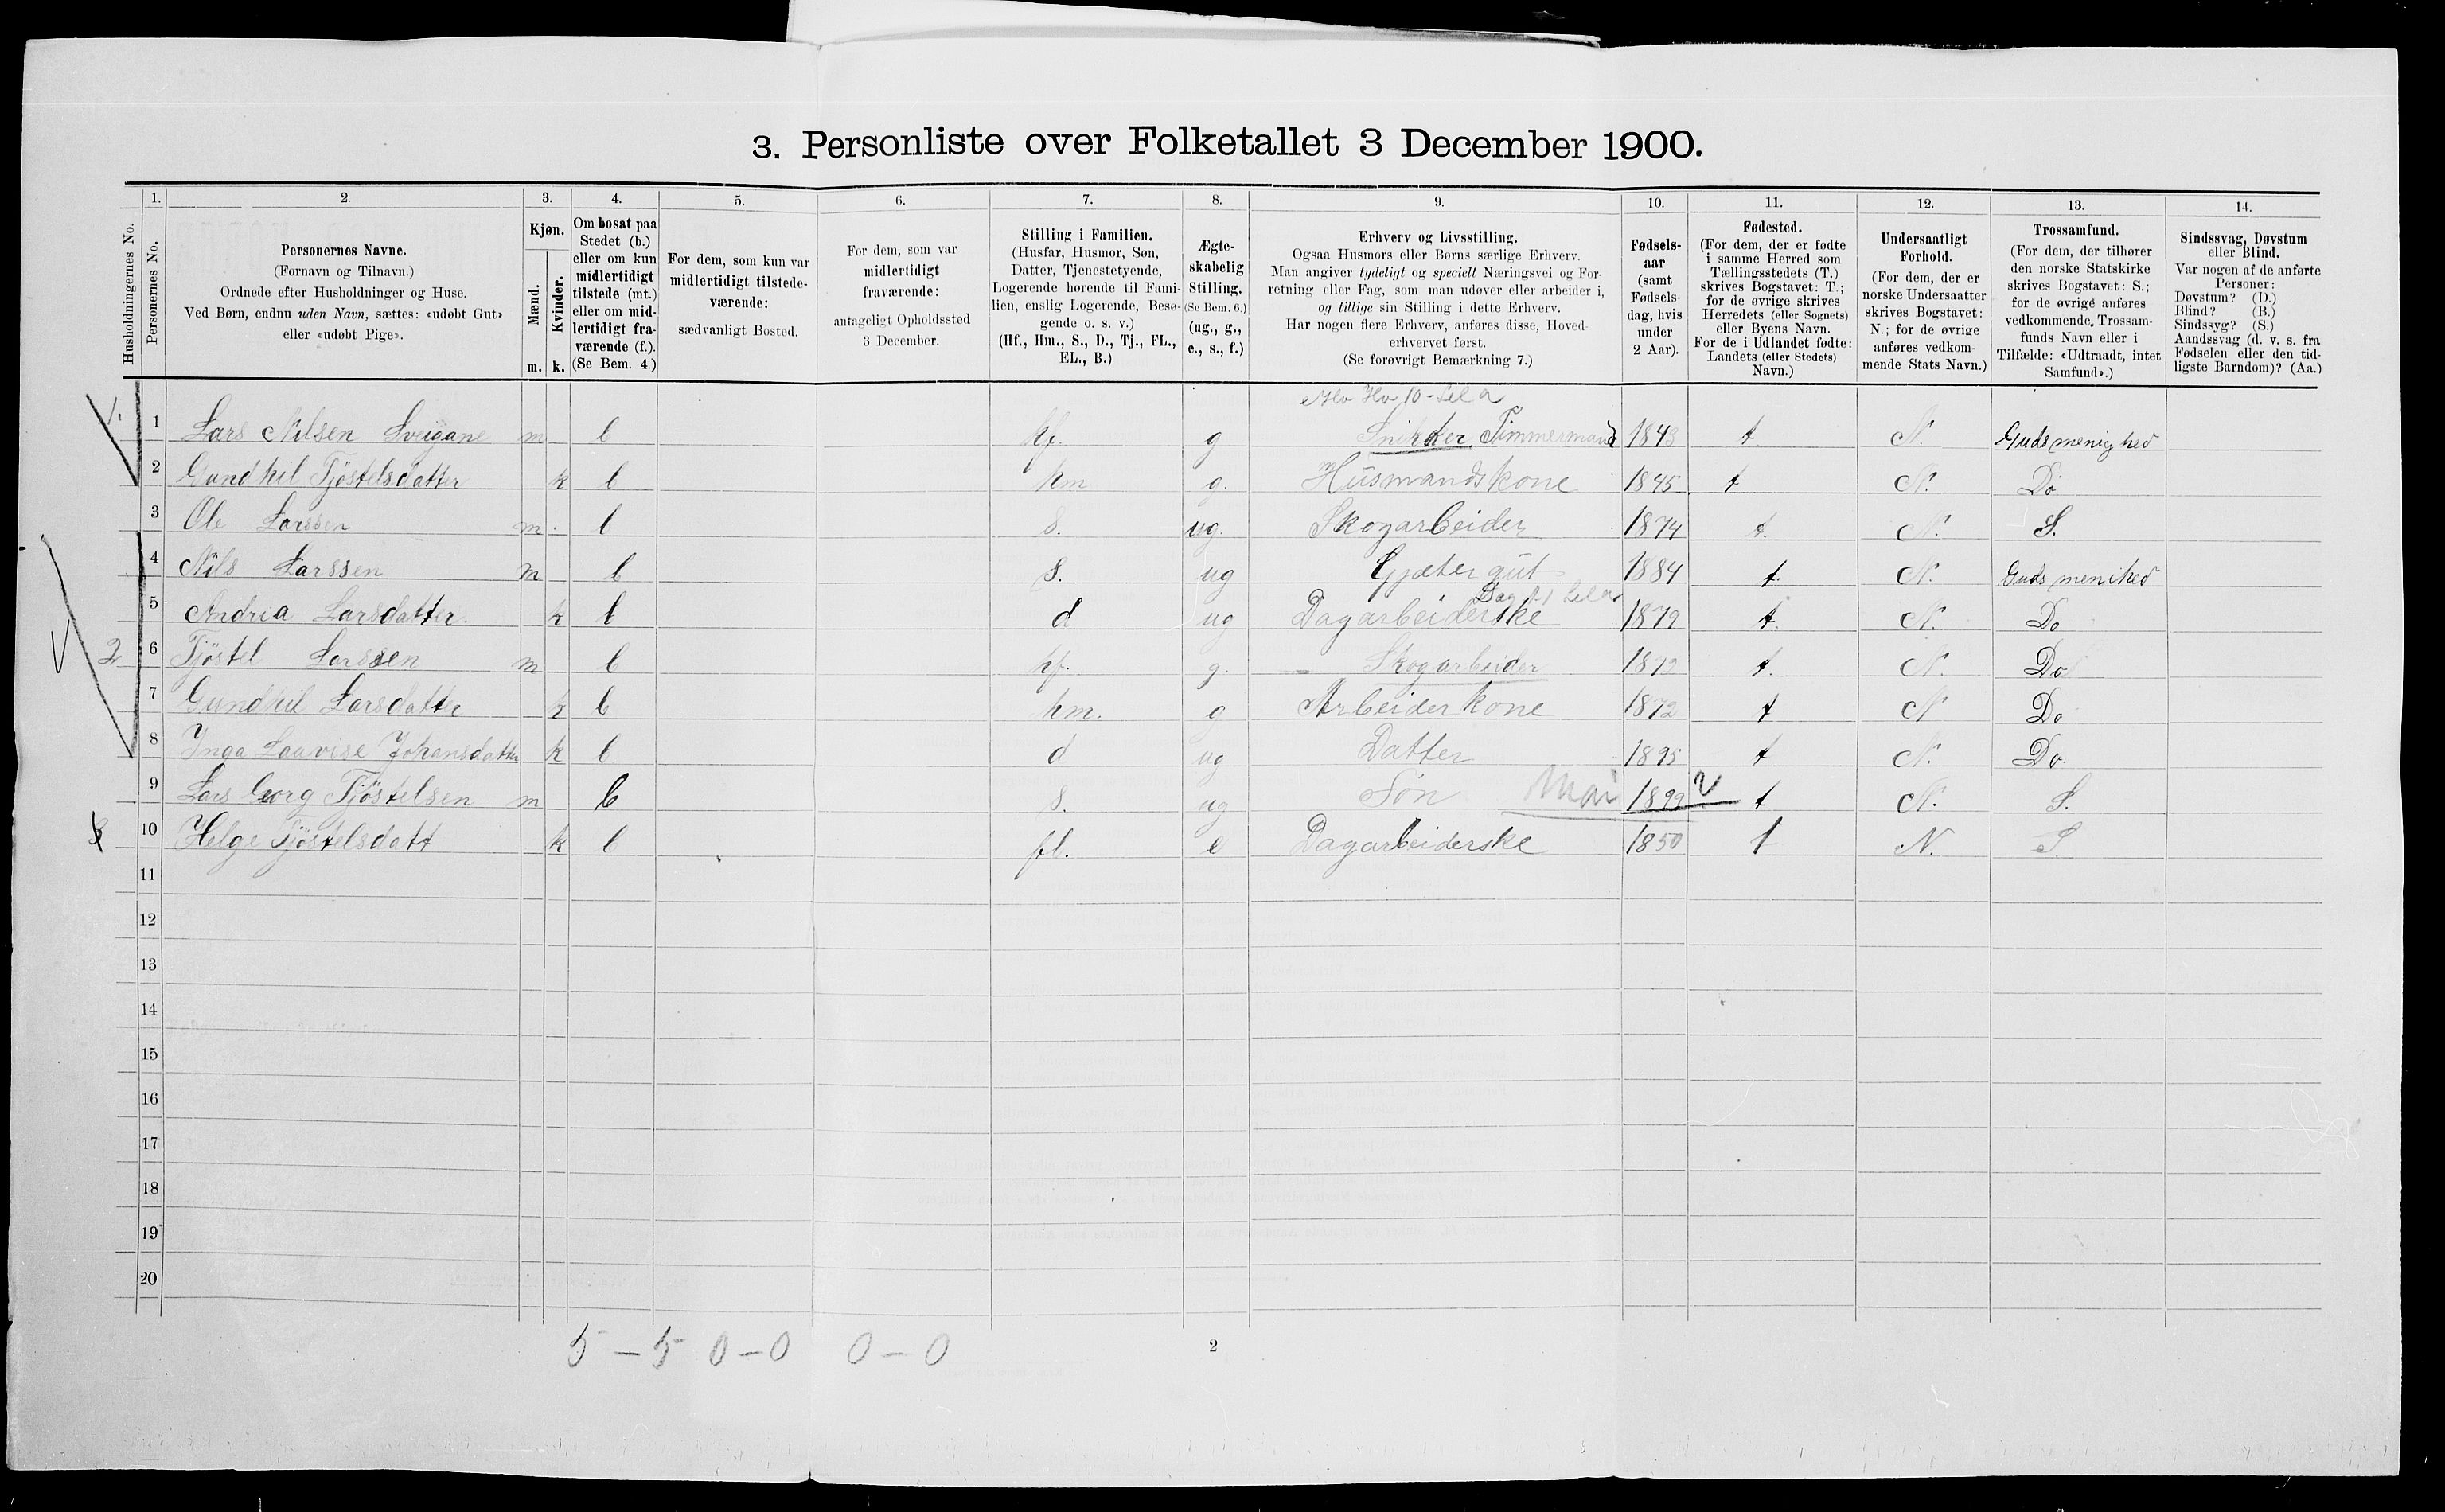 3. Personliste over Folketallet 3 December 1900.
Husholdningernes No.
1. Personernes No.
2. Personernes Navne.
(Fornavn og Tilnavn.)
Ordnede efter Husholdninger og Huse.
Ved Børn, endnu uden Navn, sættes: «udøbt Gut»
eller «udøbt Pige».
3. Kjøn.
Mænd. m.
Kvinder. k.
4. Om bosat paa
Stedet (b.)
eller om kun
midlertidigt
tilstede (mt.)
eller om mid-
lertidigt fra-
værende (f.).
(Se Bem. 4.)
5. For dem, som kun var
midlertidigt tilstede-
værende:
sædvanligt Bosted.
6. For dem, som var
midlertidigt
fraværende:
antageligt Opholdssted
3 December.
7. Stilling i Familien.
(Husfar, Husmor, Søn,
Datter, Tjenestetyende,
Logerende hørende til Fami-
lien, enslig Logerende, Besø-
gende o. s. v.)
(Hf., Hm., S., D., Tj., FL.,
EL., B.)
8. Ægte-
skabelig
Stilling.
(Se Bem. 6.)
(ug., g.,
e., s., f.)
9. Erhverv og Livsstilling.
Ogsaa Husmors eller Børns særlige Erhverv.
Man angiver tydeligt og specielt Næringsvei og For-
retning eller Fag, som man udøver eller arbeider i,
og tillige sin Stilling i dette Erhverv.
Har nogen flere Erhverv, anføres disse, Hoved-
erhvervet først.
(Se forøvrigt Bemærkning 7.)
10. Fødsels-
aar
(samt
Fødsels-
dag, hvis
under
2 Aar).
11. Fødested.
(For dem, der er fødte
i samme Herred som
Tællingsstedets (T.)
skrives Bogstavet: T.;
for de øvrige skrives
Herredets (eller Sognets)
eller Byens Navn.
For de i Udlandet fødte:
Landets (eller Stedets)
Navn.)
12. Undersaatligt
Forhold.
(For dem, der er
norske Undersaatter
skrives Bogstavet:
N.; for de øvrige
anføres vedkom-
mende Stats Navn.)
13. Trossamfund.
(For dem, der tilhører
den norske Statskirke
skrives Bogstavet: S.;
for de øvrige anføres
vedkommende Trossam-
funds Navn eller i
Tilfælde: «Udtraadt, intet
Samfund».)
14. Sindssvag, Døvstum
eller Blind.
Var nogen af de anførte
Personer:
Døvstum? (D.)
Blind? (B.)
Sindssyg? (S.)
Aandssvag (d. v. s. fra
Fødselen eller den tid-
ligste Barndom)? (Aa.)
1. 1 Lars Nilsen Sveigane m b hf. g Snikker Timmermand 1843 t N. Gudsmenighed
2 Gundhil Tjöstelsdatter k b hm g. Husmandskone 1845 t N. Do
3 Ole Larssen m. b S. ug. Skogarbeider 1874 t. N. S.
4 Nils Larssen m b S. ug Gjætergut 1884 t. N. Guds menihed
5 Andrea Larsdatter. k b d ug Dagarbeiderske 1879 t. N. Do
2 6 Tjöstel Larssen m b hf. g. Skogarbeider 1872 t. N. Do
7 Gundhil Larsdatter k b hm. g Arbeiderkone 1872 t N Do
8 Inga Louvise Johansdatter k b d ug Datter 1895 t N. Do
9 Lars Georg Tjöstelsen m b S. ug Søn Mai 1899 t N. S.
3 10 Helge Tjöstelsdatt k b fl. e Dagarbeiderske 1850 t N. S.
11
12
13
14
15
16
17
18
19
20
5 – 5 0 – 0 0 – 0
2